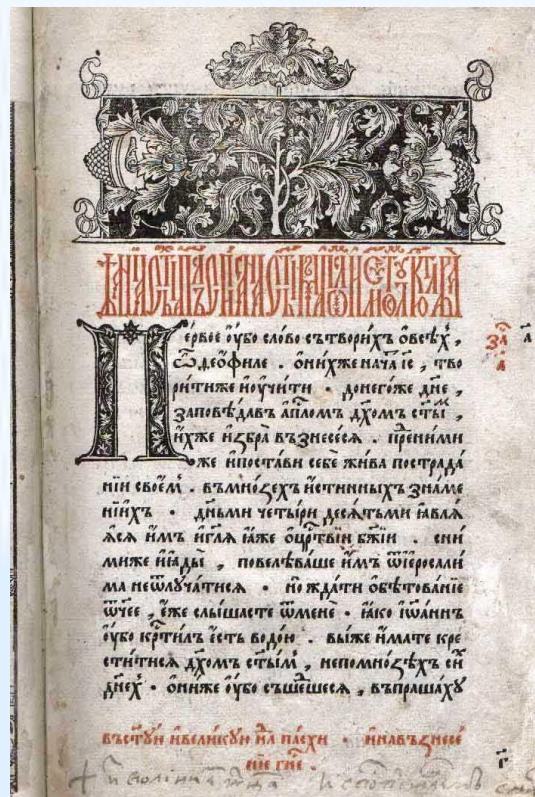 Первое ѹ҆бо сло́во сътвори́хъ ѡ҆всѣ́хъ,
ѽ деѻ҆филе . ѡ҆ни́хже нача́тъ і҆с҃, тво
ри́тиже и҆ѹ҆чи́ти . донего́же дн҃е,
заповѣ́давъ а҆пⷭ҇ломъ дх҃омъ ст҃ы́мъ,
и҆́хже и҆ꙁбра̀ въꙁнесе́сѧ . пре́ними
же и҆поста́ви себѐ жи́ва пострада́
нїи своє́мъ . въмно́ꙁехъ и҆́стинныхъ ꙁна́ме
нїихъ . дн҃ьми четы́ри десѧ́тьми ꙗ҆влѧ́
ꙗсѧ и҆́мъ и҆гл҃ѧ ꙗ҆́же ѡ҆црⷭ҇твїи бж҃їи . сни́
миже и҆ꙗды̀, повелѣва́ше и҆́мъ ѿі҆ерⷭ҇осали́
ма неѿлѹча́тисѧ . но жда́ти ѡ҆бѣтова́нїе
ѻ҆́ч҃ее, є҆́же слы́шасте ѿменѐ . ꙗ҆́ко і҆ѡа́ннъ
ѹ҆́бо крⷭ҇ти́лъ є҆́сть водо́ю . вы́же и҆́мате кре
сти́тисѧ дх҃омъ ст҃ы́мъ, непомно́ꙁѣхъ си́хъ
дне́хъ . ѻ҆ни́же ѹ҆́бо съше́дшесѧ, въпраша́хѹ
въст҃ѹ́ю и҆вели́кѹю нⷣлю па́схи . и҆навъꙁнесе́
нїе гн҃е .